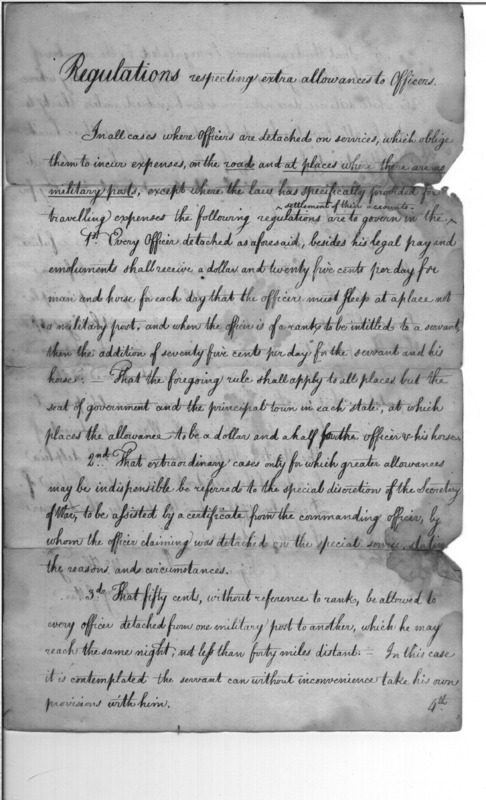 Regulations respecting extra allowances to Officers.
In all cases where Officers are detached on services, which oblige
them to incur expenses, on the road and at places where there are no
military posts, except where the law has specifically provided for
settlement of their accounts.
travelling expenses the following regulations are to govern in the ^
1st. Every Officer detached as aforesaid, besides his legal pay and
emoluments shall receive a dollar and twenty five cents per day for
man and horse for each day that the officer must sleep at a place not
a military post, and when the officer is of a rank to be intitled to a servant,
then the addition of seventy five cents per day for the servant and his
horse. — That the foregoing rule shall apply to all places but the
seat of government and the principal town in each state, at which
places the allowance to be a dollar and a half for the officer & his horse.
2nd. That extraordinary cases only for which greater allowances
may be indispensible be referred to the special discretion of the Secretary
of War, to be assisted by a certificate from the commanding officer, by
whom the officer claiming was detached on the special service,
the reasons and circumstances.
3d. That fifty cents, without reference to rank, be allowed to
every officer detached from one military post to another, which he may
reach the same night, not less than forty miles distant. — In this case
it is contemplated the servant can without inconvenience take his own
provisions with him.
4th.